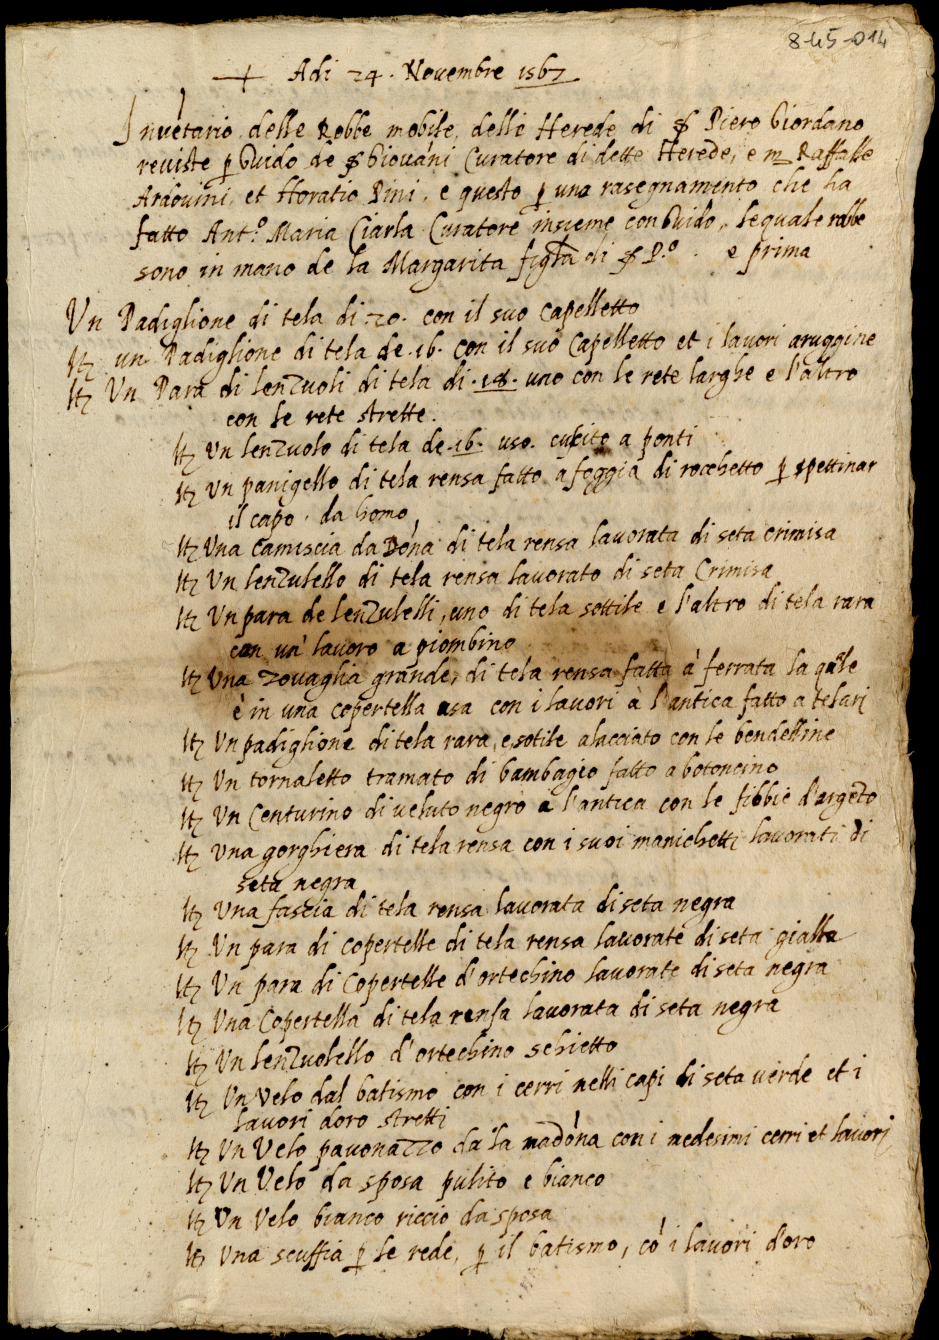 8-45-014
+ Adi 24. Novembre 1567
Invētario delle Robbe mobile delli Herede di ser Piero Giordano
reviste p Guido de ser Giovāni Curatore di dette Herede, e m Raffaelle
Ardovini et Horatio Pini, e questo p una rasegnamento che ha
fatto Ant.º Maria Ciarla Curatore insieme con Guido, le quale robbe
sono in mano de la Margarita figlia di ser P.º . e prima
Un Padiglione di tela di .20. con il suo Capelletto
Itz un Padiglione di tela de .16. con il suo Capelletto et i lavori aruggine
Itz Un Para di lenzuoli di tela di .18. uno con le rete larghe e l'altro
con le rete strette.
Itz un lenzuolo di tela de .16. uso. cusito a ponti
Itz un panigello di tela rensa fatto a foggia di rocchetto p spettinar
il capo . da homo
Itz Una Camiscia da Dōna di tela rensa lavorata di seta crimisa
Itz Un lenzulello di tela rensa lavorato di seta Crimisa
Itz Un para de lenzulelli, uno di tela sottile e l'altro di tela rara
con un' lavoro a piombino
Itz Una Tovaglia grande, di tela rensa fatta à ferrata la quale
è in una copertella usa con i lavori à l'antica fatto a telari
Itz Un padiglione di tela rara, e sotile alacciato con le bendelline
Itz Un tornaletto tramato di bambagio fatto a botoncino
Itz Un Centurino di veluto negro a l'antica con le fibbie d'argēto
Itz Una gorghiera di tela rensa con i suoi manichetti lavorati di
seta negra
Itz Una fascia di tela rensa lavorata di seta negra
Itz Un para di copertelle di tela rensa lavorate di seta gialla
Itz Un para di Copertelle d'ortechino lavorate di seta negra
Itz Una Copertella di tela rensa lavorata di seta negra
Itz Un lenzuolello d'ortechino schietto
Itz Un Velo dal batismo con i cerri nelli capi di seta verde et i
lavori doro stretti
Itz Un Velo pavonazzo da la madōna con i medesimi cerri et lavori
Itz Un Velo da sposa pulito e bianco
Itz Un Velo bianco riccio da sposa
Itz Una scuffia p le rede, p il batismo, cō i lavori d'oro